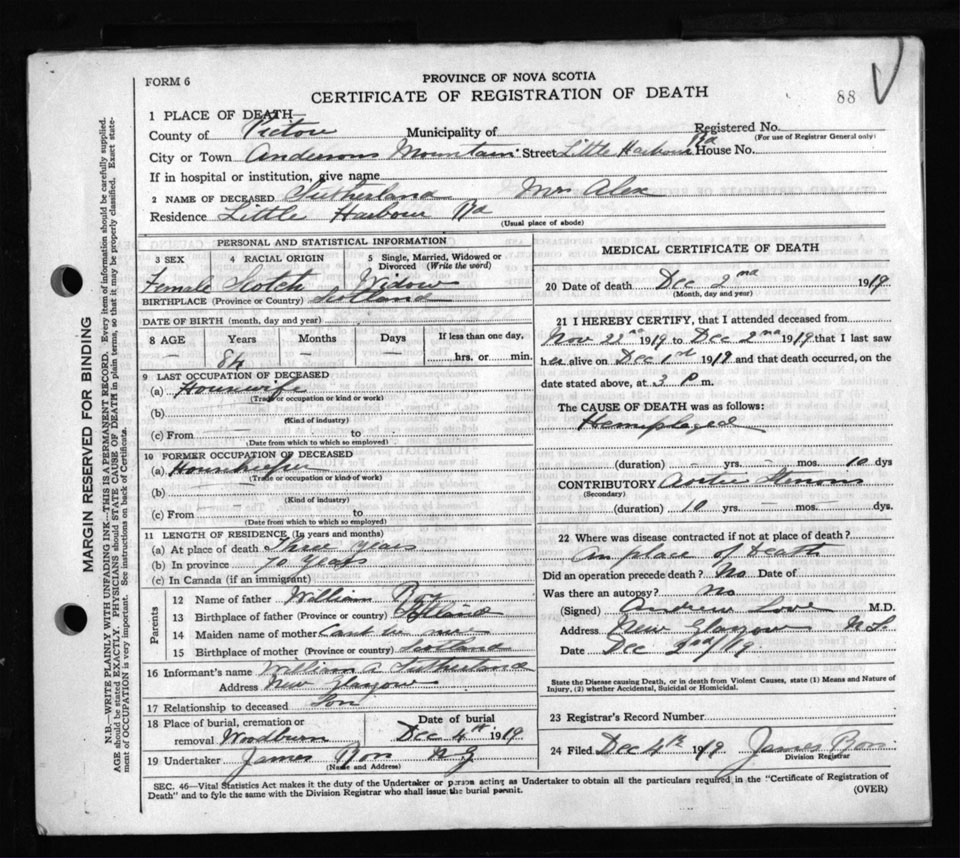 FORM 6
PROVINCE OF NOVA SCOTIA
CERTIFICATE OF REGISTRATION OF DEATH
88
1 PLACE OF DEATH—
County of Pictou Municipality of Registered No.
(For use of Registrar General only)
City or Town Andersons Mountain Street Little Harbour Rd House No.
If in hospital or institution, give name
2 NAME OF DECEASED Sutherland Mrs Alex
Residence Little Harbour Rd
(Usual place of abode)
PERSONAL AND STATISTICAL INFORMATION
3 SEX 4 RACIAL ORIGIN 5 Single, Married, Widowed or Divorced (Write the word)
Female Scotch Widow
BIRTHPLACE (Province or Country) Scotland
DATE OF BIRTH (month, day and year)
8 AGE Years Months Days If less than one day,
— 84 — — hrs. or min.
9 LAST OCCUPATION OF DECEASED
(a) Housewife
(Trade or occupation or kind or work)
(b)
(Kind of industry)
(c) From — to
(Date from which to which so employed)
10 FORMER OCCUPATION OF DECEASED
(a) Housekeeper
(Trade or occupation or kind of work)
(b) —
(Kind of industry)
(c) From — to
(Date from which to which so employed)
11 LENGTH OF RESIDENCE (In years and months)
(a) At place of death Three years
(b) In province 70 years
(c) In Canada (if an immigrant)
Parents
12 Name of father William Roy
13 Birthplace of father (Province or country) Scotland
14 Maiden name of mother
15 Birthplace of mother (Province or country) Scotland
16 Informant's name William A Sutherland
Address New Glasgow
17 Relationship to deceased Son
18 Place of burial, cremation or removal Woodburn
Date of burial
Dec 4th 1919
19 Undertaker James Ross N G
(Name and Address)
MEDICAL CERTIFICATE OF DEATH
20 Date of death Dec 2nd 1919
(Month, day and year)
21 I HEREBY CERTIFY, that I attended deceased from
Nov 22nd 1919 to Dec 2nd 1919 that I last saw
her alive on Dec 1st 1919 and that death occurred, on the
date stated above, at 3 P m.
The CAUSE OF DEATH was as follows:
Hemiplegia
(duration) — yrs. — mos. 10 dys
CONTRIBUTORY Aortic Stenosis
(Secondary)
(duration) 10 yrs. — mos. — dys.
22 Where was disease contracted if not at place of death?
In place of Death
Did an operation precede death? No Date of
Was there an autopsy? No
(Signed) Andrew Love M.D.
Address New Glasgow N.S.
Date Dec 2nd/19
State the Disease causing Death, or in death from Violent Causes, state (1) Means and Nature of
Injury, (2) whether Accidental, Suicidal or Homicidal.
23 Registrar's Record Number
24 Filed Dec 4th 1919 James Ross
Division Registrar
SEC. 46—Vital Statistics Act makes it the duty of the Undertaker or person acting as Undertaker to obtain all the particulars required in the "Certificate of Registration of
Death" and to fyle the same with the Division Registrar who shall issue the burial permit.
(OVER)
MARGIN RESERVED FOR BINDING
N.B.—WRITE PLAINLY WITH UNFADING INK—THIS IS A PERMANENT RECORD. Every item of information should be carefully supplied.
AGE should be stated EXACTLY. PHYSICIANS should STATE CAUSE OF DEATH in plain terms, so that it may be properly classified. Exact statement
of OCCUPATION is very important. See instructions on back of Certificate.